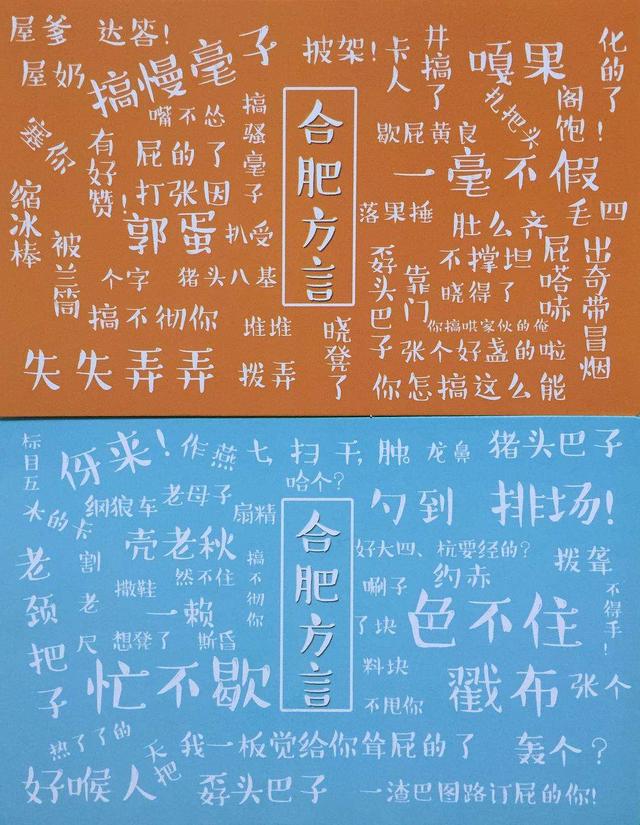 屋爹
达答!
屋奶
搞慢毫子
披架!
卡人
井搞了
嘎果
化的了!
塞你
有好赞!
嘴不怂
屁的了
打张因
搞骚毫子
合肥方言
扎把头
阁饱!
歇屁黄良
一毫不假
缩冰棒
被兰筒
郭蛋
扒受
落果捶
肚么齐
毛四
个字
猪头八基
孬头巴子
靠门
不撑坦
晓得了
屁嗒哧
出奇带冒烟
搞不彻你
堆堆
晓凳了
你搞哄家伙的俺
失失弄弄
拨弄
张个好盏的啦
你怎搞这么能
标目五
伢来!
作燕七,扫干,肿。
龙鼻
猪头巴子
哈个?
头的卡
纲狼车
老母子
扇精
勺到
排场!
老颈把子
割老尺
壳老秋
撒鞋
然不住
搞不彻你
合肥方言
好大四、杭要经的?
拨聋
唰子
约赤
一赖
想凳了
斯昏
了块
色不住
不得手!
忙不歇
料块
不甩你
戳布
张个
热了了的
天把
我一板觉给你耸屁的了
轰个?
好喉人
孬头巴子
一渣巴图路订屁的你!